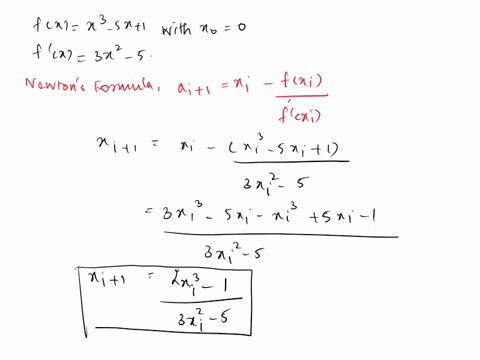 f(x) = x³ - 5x + 1 with x₀ = 0
f'(x) = 3x² - 5.
Newton's Formula, a_{i+1} = x_i - f(x_i) / f'(x_i)
x_{i+1} = x_i - (x_i³ - 5x_i + 1) / 3x_i² - 5
= 3x_i³ - 5x_i - x_i³ + 5x_i - 1 / 3x_i² - 5
x_{i+1} = 2x_i³ - 1 / 3x_i² - 5